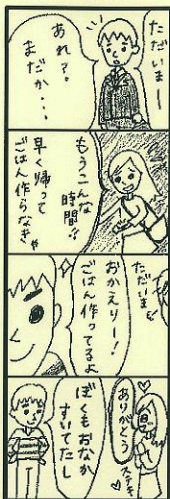 ただいまー
あれ?。
まだか・・・
もうこんな
時間!!
早く帰って
ごはん作らなきゃ
ただいまぁ
おかえりー!
ごはん作ってるよ
ありがとう
ステキ
ぼくもおなか
すいてたし